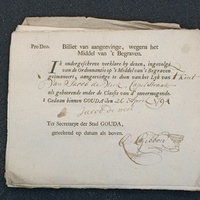 Pro Deo. Billet van aangeevinge, wegens het
Middel van 't Begraven.
Ik ondergeschreven verklare by dezen, ingevolge
van de Ordonnantie op 't Middel van 't Begraven
geëmaneert, aangeevinge te doen van het Lyk van 1 Kint
van Jacob de
als gehoorende onder de Classis van d' onvermogende.
Gedaan binnen GOUDA den 26 1794
Jacob de
Ter Secretarye der Stad GOUDA,
geteekend op datum als boven.